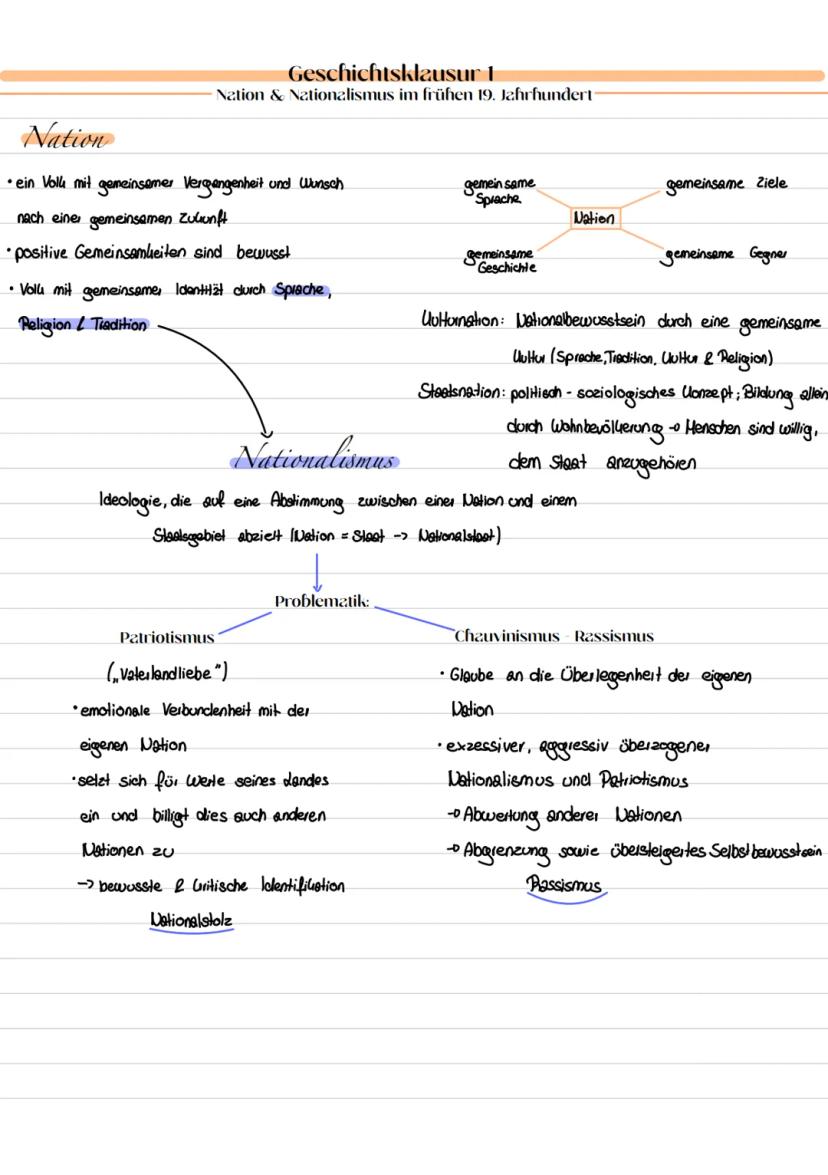 Geschichtsklausur 1
Nation & Nationalismus im frühen 19. Jahrhundert
Nation
• ein Volk mit gemeinsamer Vergangenheit und Wunsch
nach einer gemeinsamen Zukunft
• positive Gemeinsamkeiten sind bewusst
• Volk mit gemeinsamer Identität durch Sprache,
Religion & Tradition
gemeinsame
Sprache
gemeinsame Ziele
Nation
gemeinsame
Geschichte
gemeinsame Gegner
Kulturnation: Nationalbewusstsein durch eine gemeinsame
Kultur (Sprache, Tradition, Kultur & Religion)
Staatsnation: politisch - soziologisches Konzept; Bildung allein
durch Wohnbevölkerung → Menschen sind willig,
dem Staat anzugehören
Nationalismus
Ideologie, die auf eine Abstimmung zwischen einer Nation und einem
Staatsgebiet abzielt (Nation = Staat -> Nationalstaat)
Problematik:
Patriotismus
(„Vaterlandliebe")
• emotionale Verbundenheit mit der
eigenen Nation
• setzt sich für Werte seines Landes
ein und billigt dies auch anderen
Nationen zu
-> bewusste & kritische Identifikation
Nationalstolz
Chauvinismus - Rassismus
• Glaube an die Überlegenheit der eigenen
Nation
• exzessiver, aggressiv überzogener
Nationalismus und Patriotismus
→ Abwertung anderer Nationen
→ Abgrenzung sowie übersteigertes Selbstbewusstsein
Rassismus